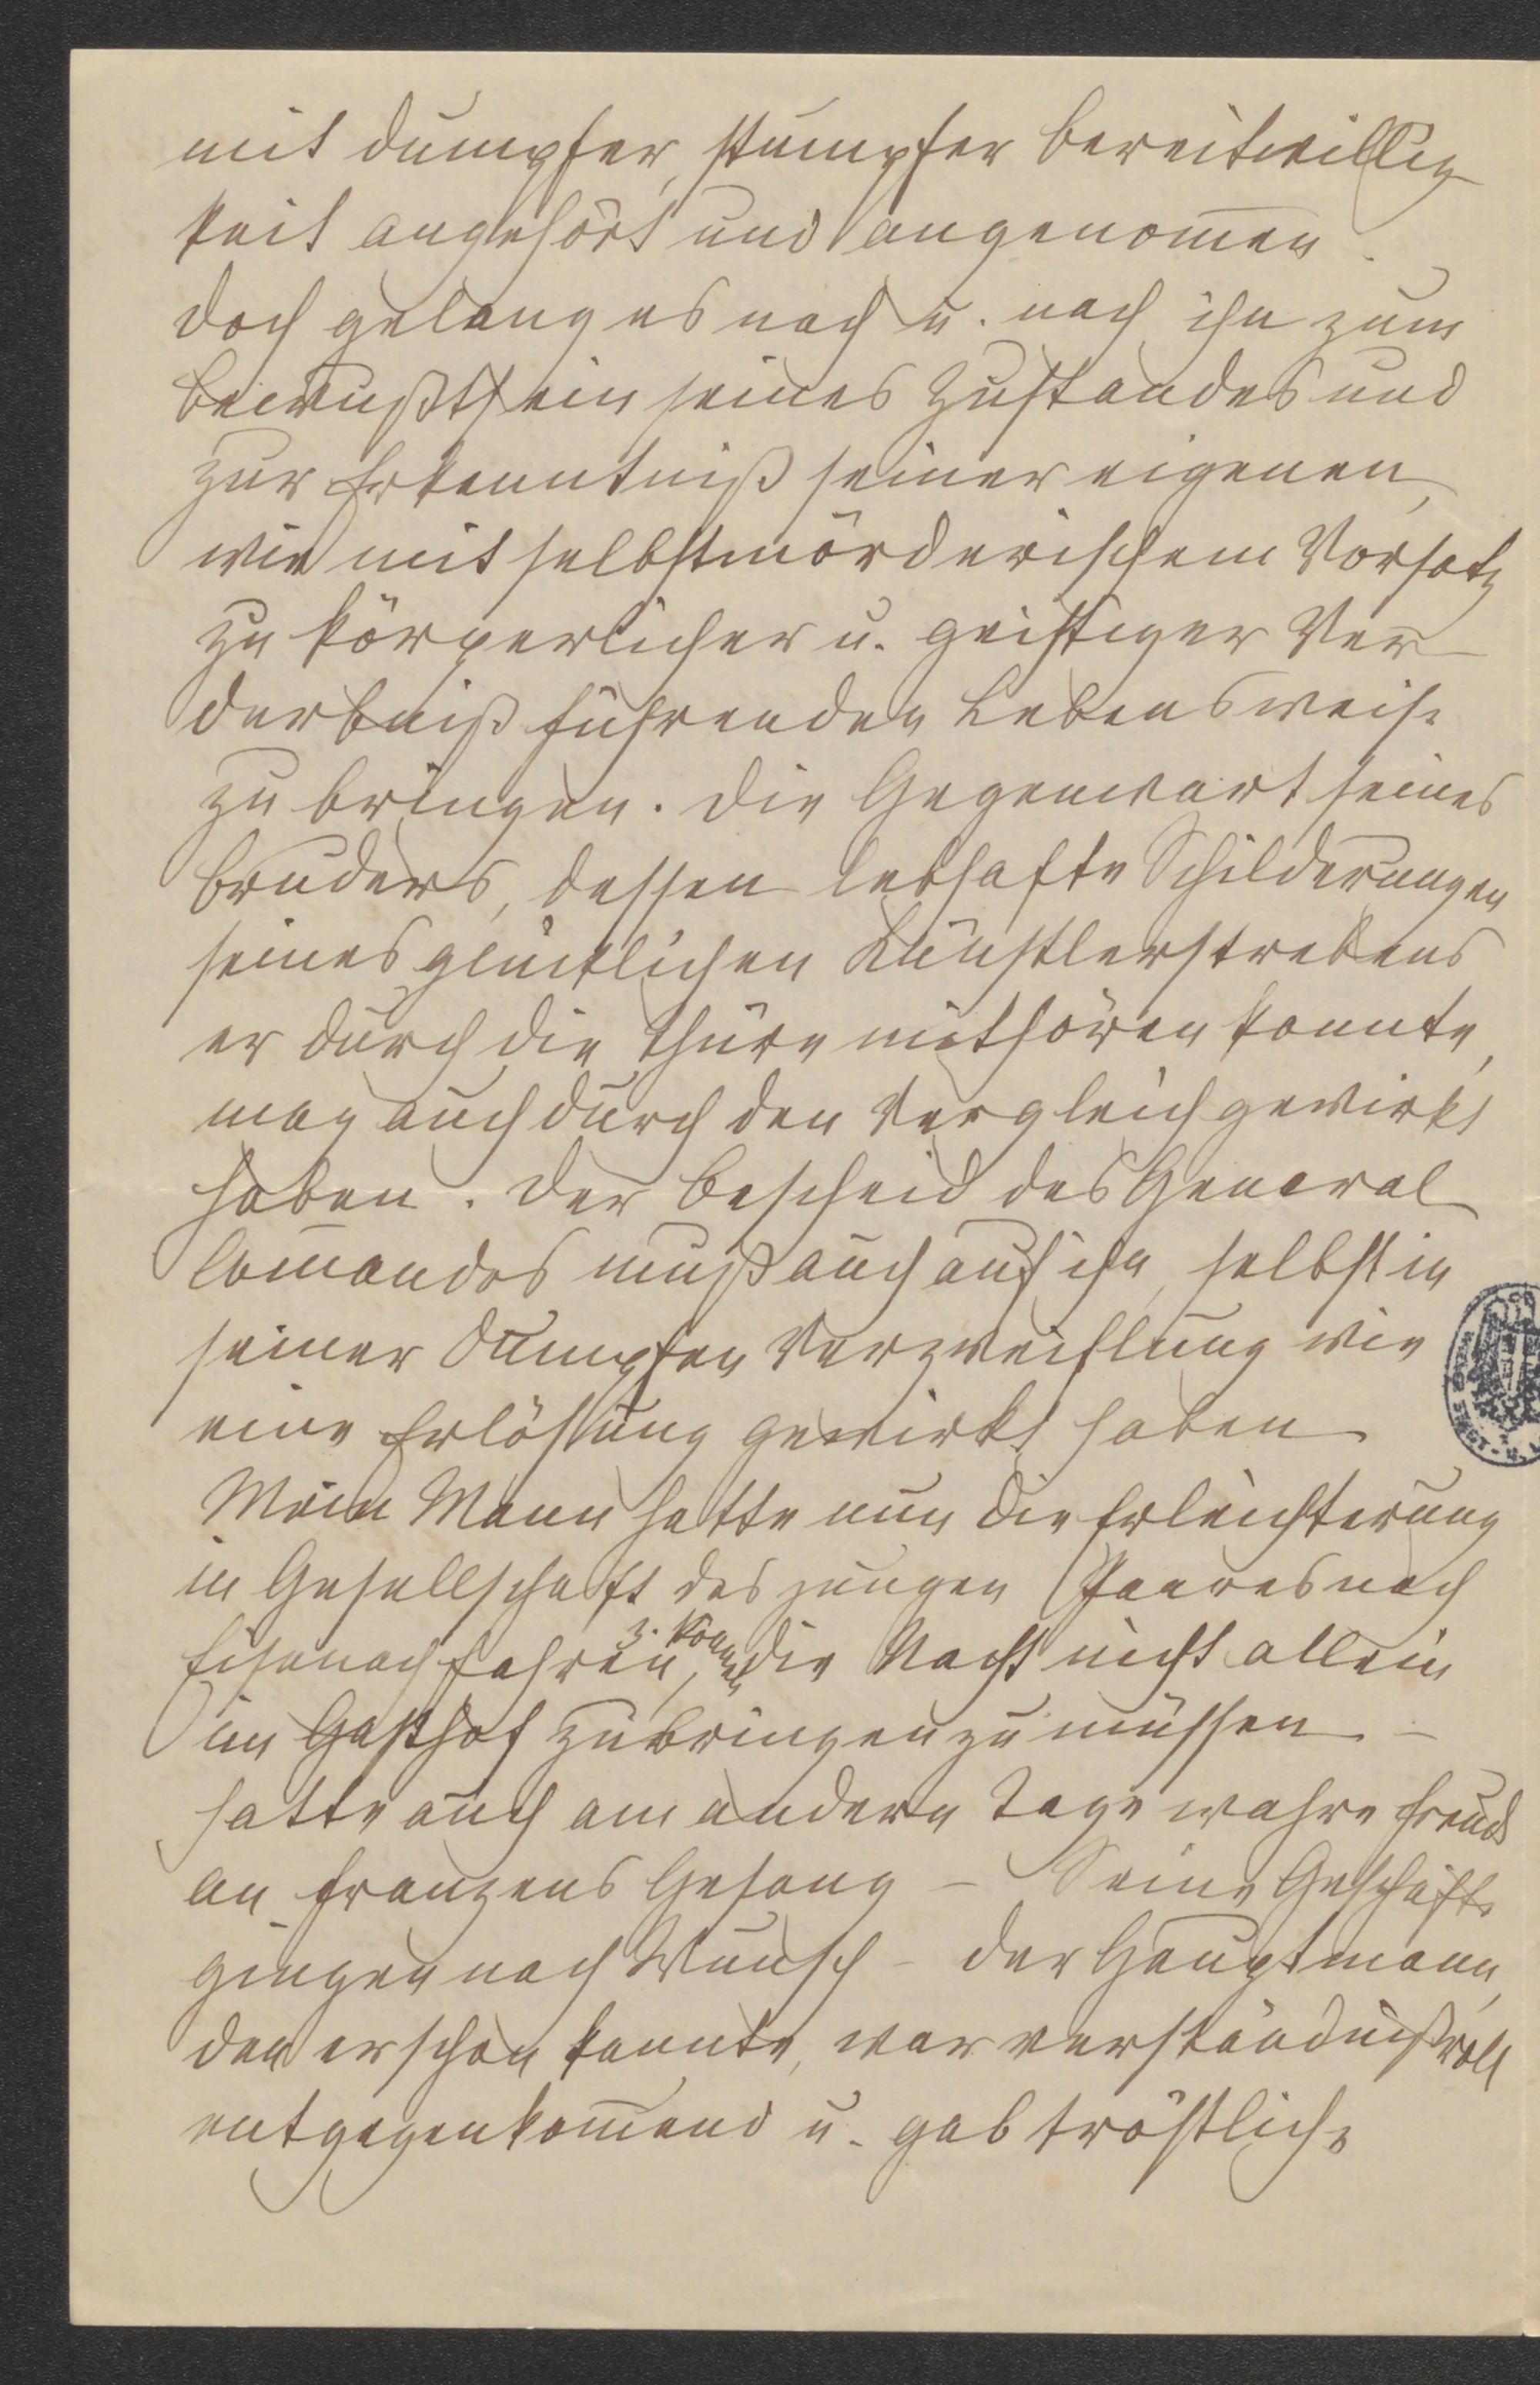 mit dumpfer, stumpfer Bereitwillig
keit angehört und angenom̅en.
Doch gelang es nach u. nach ihn zum
Bewußtsein seines Zustandes und
zur Erkenntniß seiner eigenen,
wie mit selbstmörderischem Vorsatz
zu körperlicher u. geistiger Ver-
derbniß führenden Lebensweise
zu bringen. Die Gegenwart seines
Bruders, dessen lebhafte Schilderungen
seines glücklichen Künstlerstrebens
er durch die Thüre mithören konnte,
mag auch durch den Vergleich gewirkt
haben. Der Bescheid des General
Com̅andos muß auch auf ihn, selbst in
seiner dumpfen Verzweiflung wie
eine Erlösung gewirkt haben.
Mein Mann hatte nun die Erleichterung
in Gesellschaft des jungen Paares nach
Eisenach fahren z. können, die Nacht nicht allein
im Gasthof zubringen zu müssen –
hatte auch am andern Tage wahre Freude
an Franzens Gesang – Seine Geschäfte
gingen nach Wunsch – der Hauptmann,
den er schon kannte, war verständnißvoll
entgegenkom̅end u. gab tröstliche